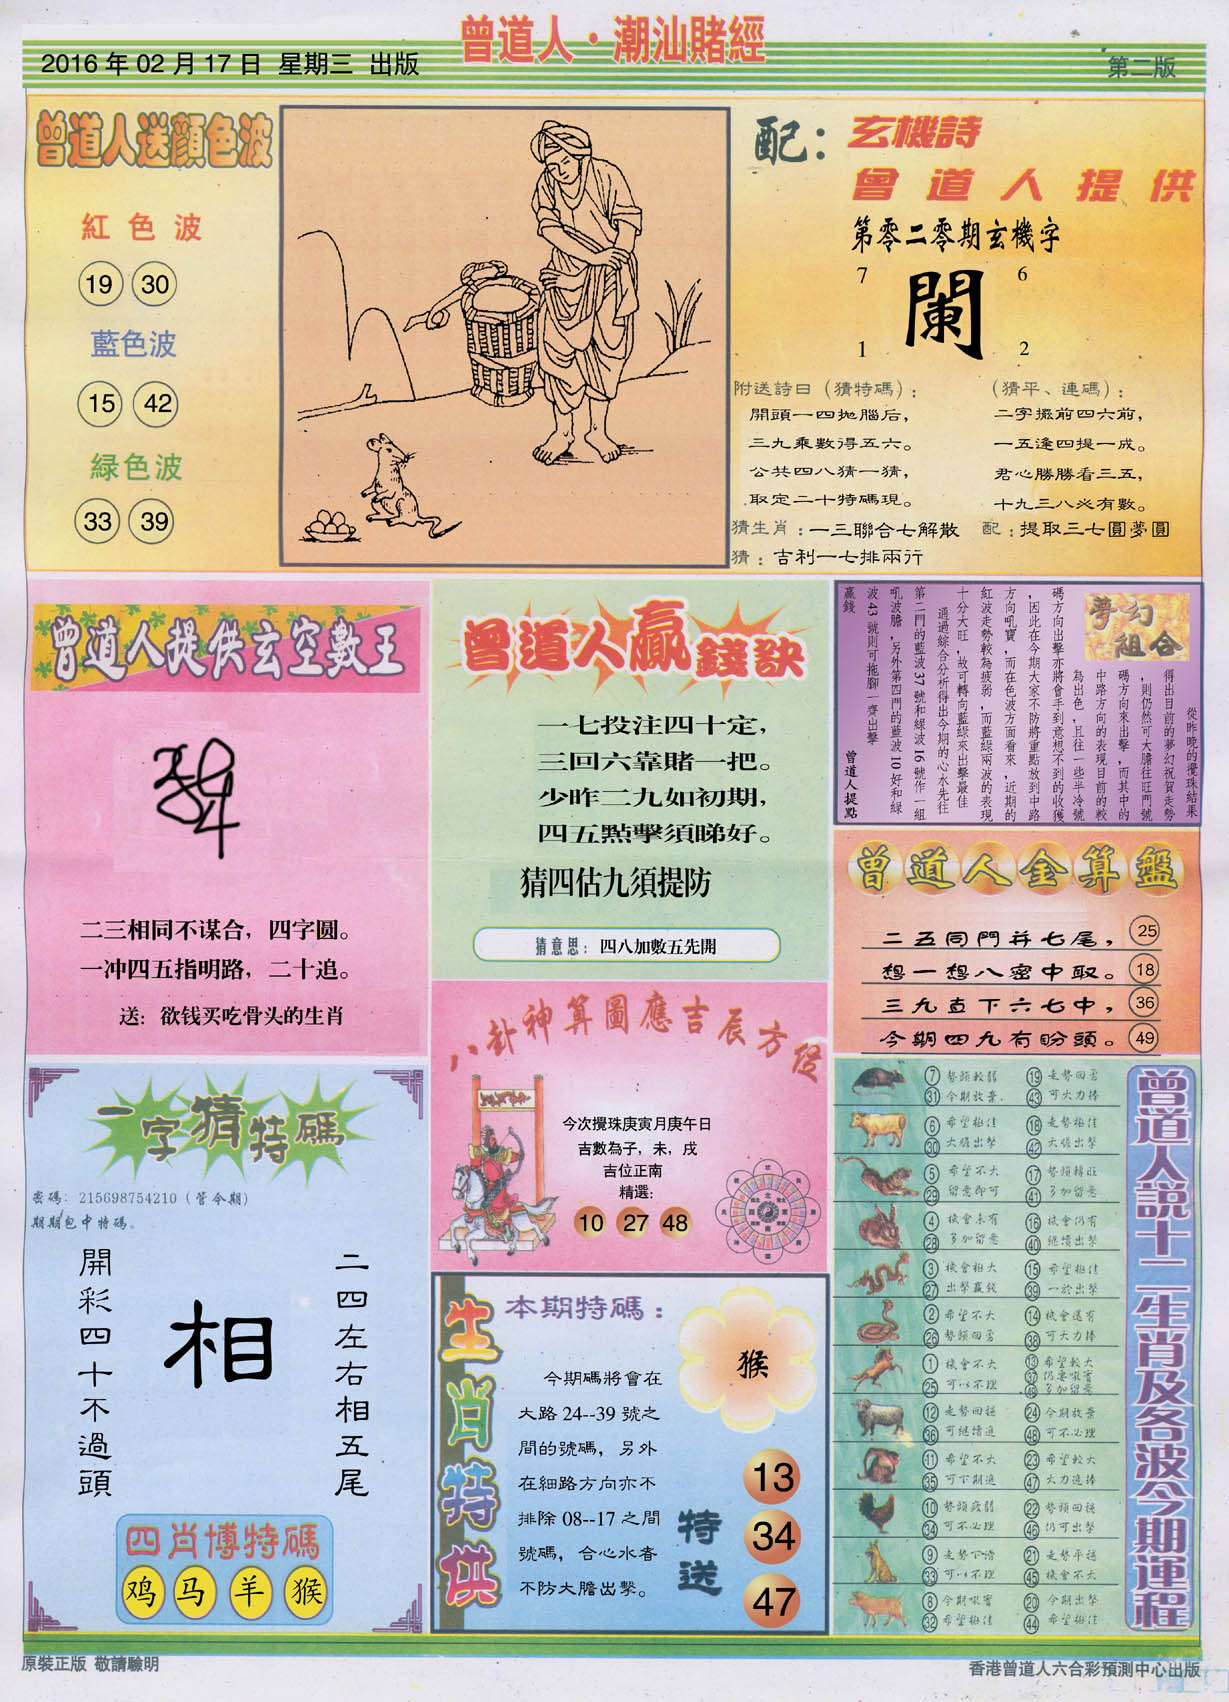 曾道人·潮汕賭經
2016年02月17日 星期三 出版
第二版
曾道人送顏色波
紅色波
19 30
藍色波
15 42
緑色波
33 39
配：玄機詩
曾道人提供
第零二零期玄機字
7 6
闌
1 2
附送詩曰（猜特碼）：
開頭一四拋腦后，
三九乘數得五六。
公共四八猜一猜，
取定二十特碼現。
（猜平、連碼）：
二字擺前四六前，
一五逢四提一成。
君心勝勝看三五，
十九三八必有數。
猜生肖：一三聯合七解散 配：提取三七圓夢圓
猜：吉利一七排兩行
曾道人提供玄空數王
二三相同不谋合，四字圆。
一冲四五指明路，二十追。
送：欲钱买吃骨头的生肖
曾道人贏錢訣
一七投注四十定，
三回六靠賭一把。
少昨二九如初期，
四五點擊須睇好。
猜四估九須提防
猜意思：四八加數五先開
夢幻
組合
從昨晚的攪珠結果
得出目前的夢幻祝賀走勢
，則仍然可大膽往旺門號
碼方向來出擊，而其中的
中路方向的表現目前的較
為出色，且往一些半冷號
碼方向出擊亦將會手到意想不到的收獲
，因此在今期大家不防將重點放到中路
方向吼寶，而在色波方面看來，近期的
紅波走勢較為疲弱，而藍綠兩波的表現
十分大旺，故可轉向藍綠來出擊最佳
通過綜合分析得出今期的心水先往
第二門的藍波37號和綠波16號作一組
吼波膽，另外第四門的藍波10好和綠
波43號則可拖腳一齊出擊
贏錢 曾道人提點
曾道人金算盤
二五同門并七尾， 25
想一想八密中取。 18
三九直下六七中， 36
今期四九有盼頭。 49
八卦神算圖應吉辰方位
今次攪珠庚寅月庚午日
吉數為子，未，戌
吉位正南
精選：
10 27 48
一字猜特碼
密碼：215698754210（管令期）
期期包中特碼。
二四左右相五尾
相
開彩四十不過頭
四肖博特碼
鸡 马 羊 猴
生肖特供
本期特碼：
猴
今期碼將會在
大路24--39號之
間的號碼，另外
在細路方向亦不
排除08--17之間
號碼，合心水者
不防大膽出擊。
特送
13
34
47
曾道人説十二生肖及各波今期運程
7 勢頭較弱 19 走勢回勇
31 今期放棄. 43 可大力捧
6 希望極佳 18 走勢極佳
30 大膽出擊 42 大膽出擊
5 希望不大 17 勢頭轉旺
29 留意即可 41 多加留意
4 機會未有 16 機會仍有
28 多加留意 40 繼續出擊
3 機會極大 15 希望極佳
27 出擊贏錢 39 一於出擊
2 希望不大 14 機會還有
26 勢頭回勇 38 可大力捧
1 機會不大 13 希望較大
25 可以不理 37 仍要吼實
49 多加留意
12 走勢回穩 24 今期放棄
36 可繼續追 48 可不必理
11 希望不大 23 希望較大
35 可下期追 47 大力追捧
10 勢頭疲弱 22 勢頭回穩
34 可不必理 46 仍可出擊
9 走勢下滑 21 走勢平穩
33 可以不理 45 機會不大
8 今期吼實 20 今期出擊
32 希望極佳 44 希望極佳
原裝正版 敬請驗明
香港曾道人六合彩預測中心出版